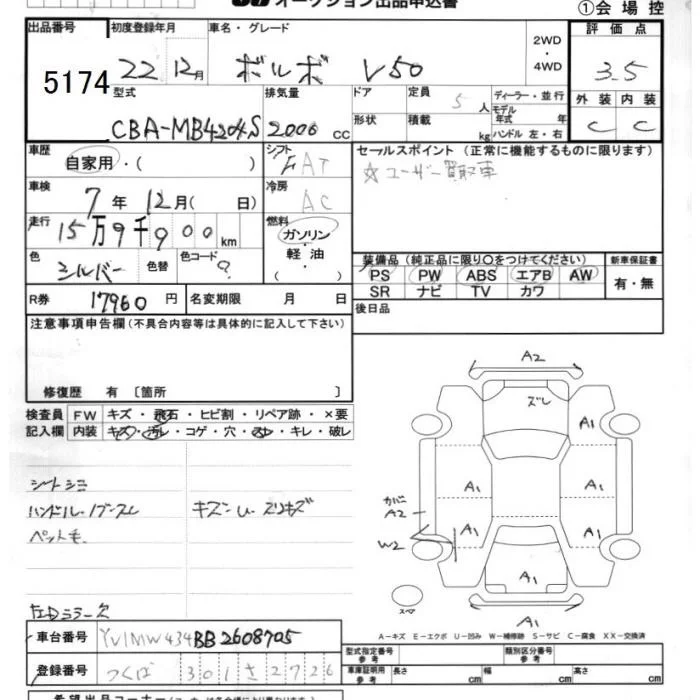 オークション出品申込書
①会場控
出品番号 初度登録年月 車名・グレード 2WD・4WD 評価点
5174 22 12月 ボルボ V50 3.5
型式 排気量 ドア 定員 5人 ディーラー・並行 外装 内装
モデル年式 年
CBA-MB4204S 2000cc 形状 積載 kg ハンドル 左・右 C C
車歴 自家用・( ) シフト FAT セールスポイント(正常に機能するものに限ります)
☆ユーザー買取車
車検 7年12月( 日) 冷房 AC
走行 15万9千900km 燃料 ガソリン・軽油・( )
色 シルバー 色替 色コード ?
装備品(純正品に限り○をつけてください) 新車保証書
PS PW ABS エアB AW 有・無
SR ナビ TV カワ
R券 17960円 名変期限 月 日
後日品
注意事項申告欄(不具合内容等は具体的に記入して下さい)
修復歴 有 〔箇所 〕
検査員記入欄 FW キズ・飛石・ヒビ割・リペア跡・×要
内装 キズ・汚レ・コゲ・穴・スレ・キレ・破レ
シートシミ
ハンドル・ノブスレ キズ スリキズ
ペット毛
ミラー欠
A2
ズレ
A1
A1 A1
カバーA2
A1 A1
W2
A1 A1
スペア
A1
A-キズ E-エクボ U-凹み W-補修跡 S-サビ C-腐食 XX-交換済
車台番号 YV1MW434BB2608705
登録番号 つくば 301 さ 2726
型式指定番号 参考 類別区分番号 参考
車庫証明用 参考 長さ cm 幅 cm 高さ cm